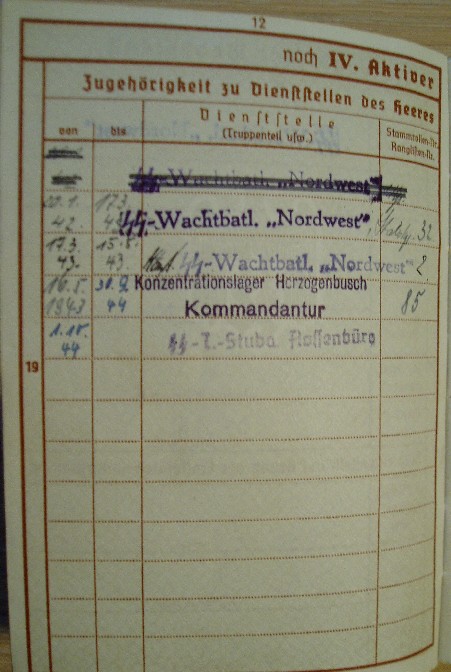 12
noch IV. Aktiver
Zugehörigkeit zu Dienststellen des Heeres
von bis Dienststelle (Truppenteil usw.) Stammrollen-Nr. Ranglisten-Nr.
SS-Wachtbatl. „Nordwest"
20.1. 42. 17.3. 43. SS-Wachtbatl. „Nordwest", 32
17.3. 43. 15.8. 43. SS-Wachtbatl. „Nordwest" 2
16.8. 1943 30.9. 44 Konzentrationslager Herzogenbusch
Kommandantur 85
1.10. 44 SS-T.-Stuba Flossenbürg
19